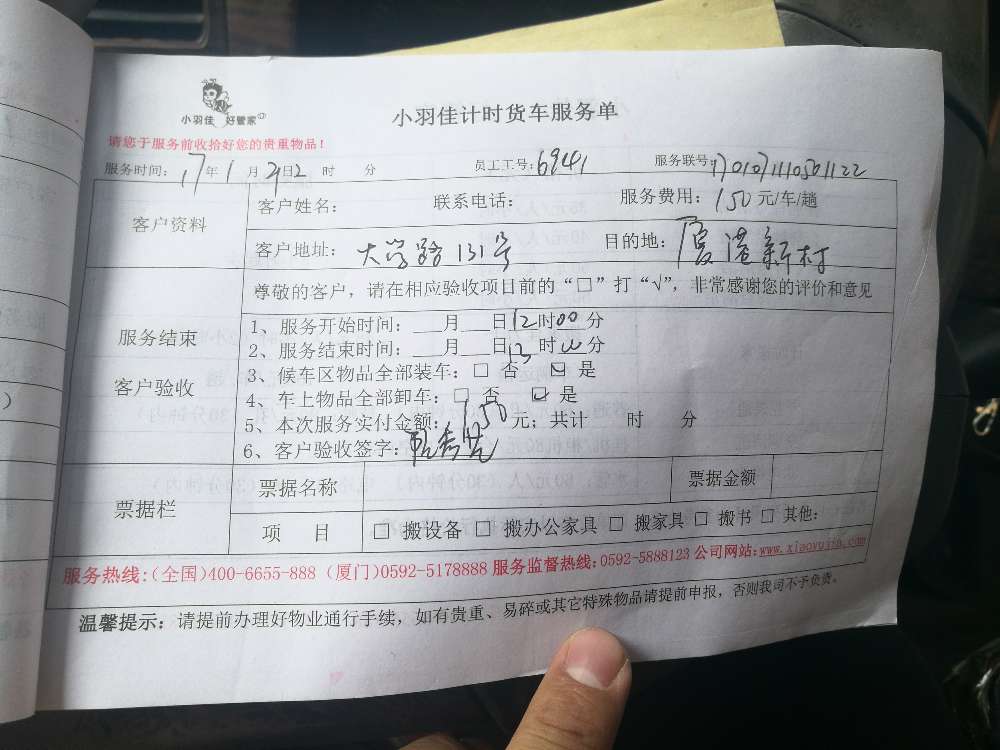 小羽佳 好管家
小羽佳计时货车服务单
请您于服务前收拾好您的贵重物品！
服务时间：17年1月21日12时 分 员工工号：6941 服务联号：1701071110501122
客户资料
客户姓名： 联系电话： 服务费用：150元/车/趟
客户地址：大学路131号 目的地：厦港新村
服务结束
客户验收
尊敬的客户，请在相应验收项目前的“□”打“√”，非常感谢您的评价和意见
1、服务开始时间：___月___日12时00分
2、服务结束时间：___月___日13时00分
3、候车区物品全部装车：□ 否 ☑ 是
4、车上物品全部卸车：□ 否 ☑ 是
5、本次服务实付金额：150元；共计 时 分
6、客户验收签字：
票据栏
票据名称 票据金额
项 目 □ 搬设备 □ 搬办公家具 □ 搬家具 □ 搬书 □ 其他：
服务热线：（全国）400-6655-888（厦门）0592-5178888 服务监督热线：0592-5888123 公司网站：www.xiaoyujia.com
温馨提示：请提前办理好物业通行手续，如有贵重、易碎或其它特殊物品请提前申报，否则我司不予负责。